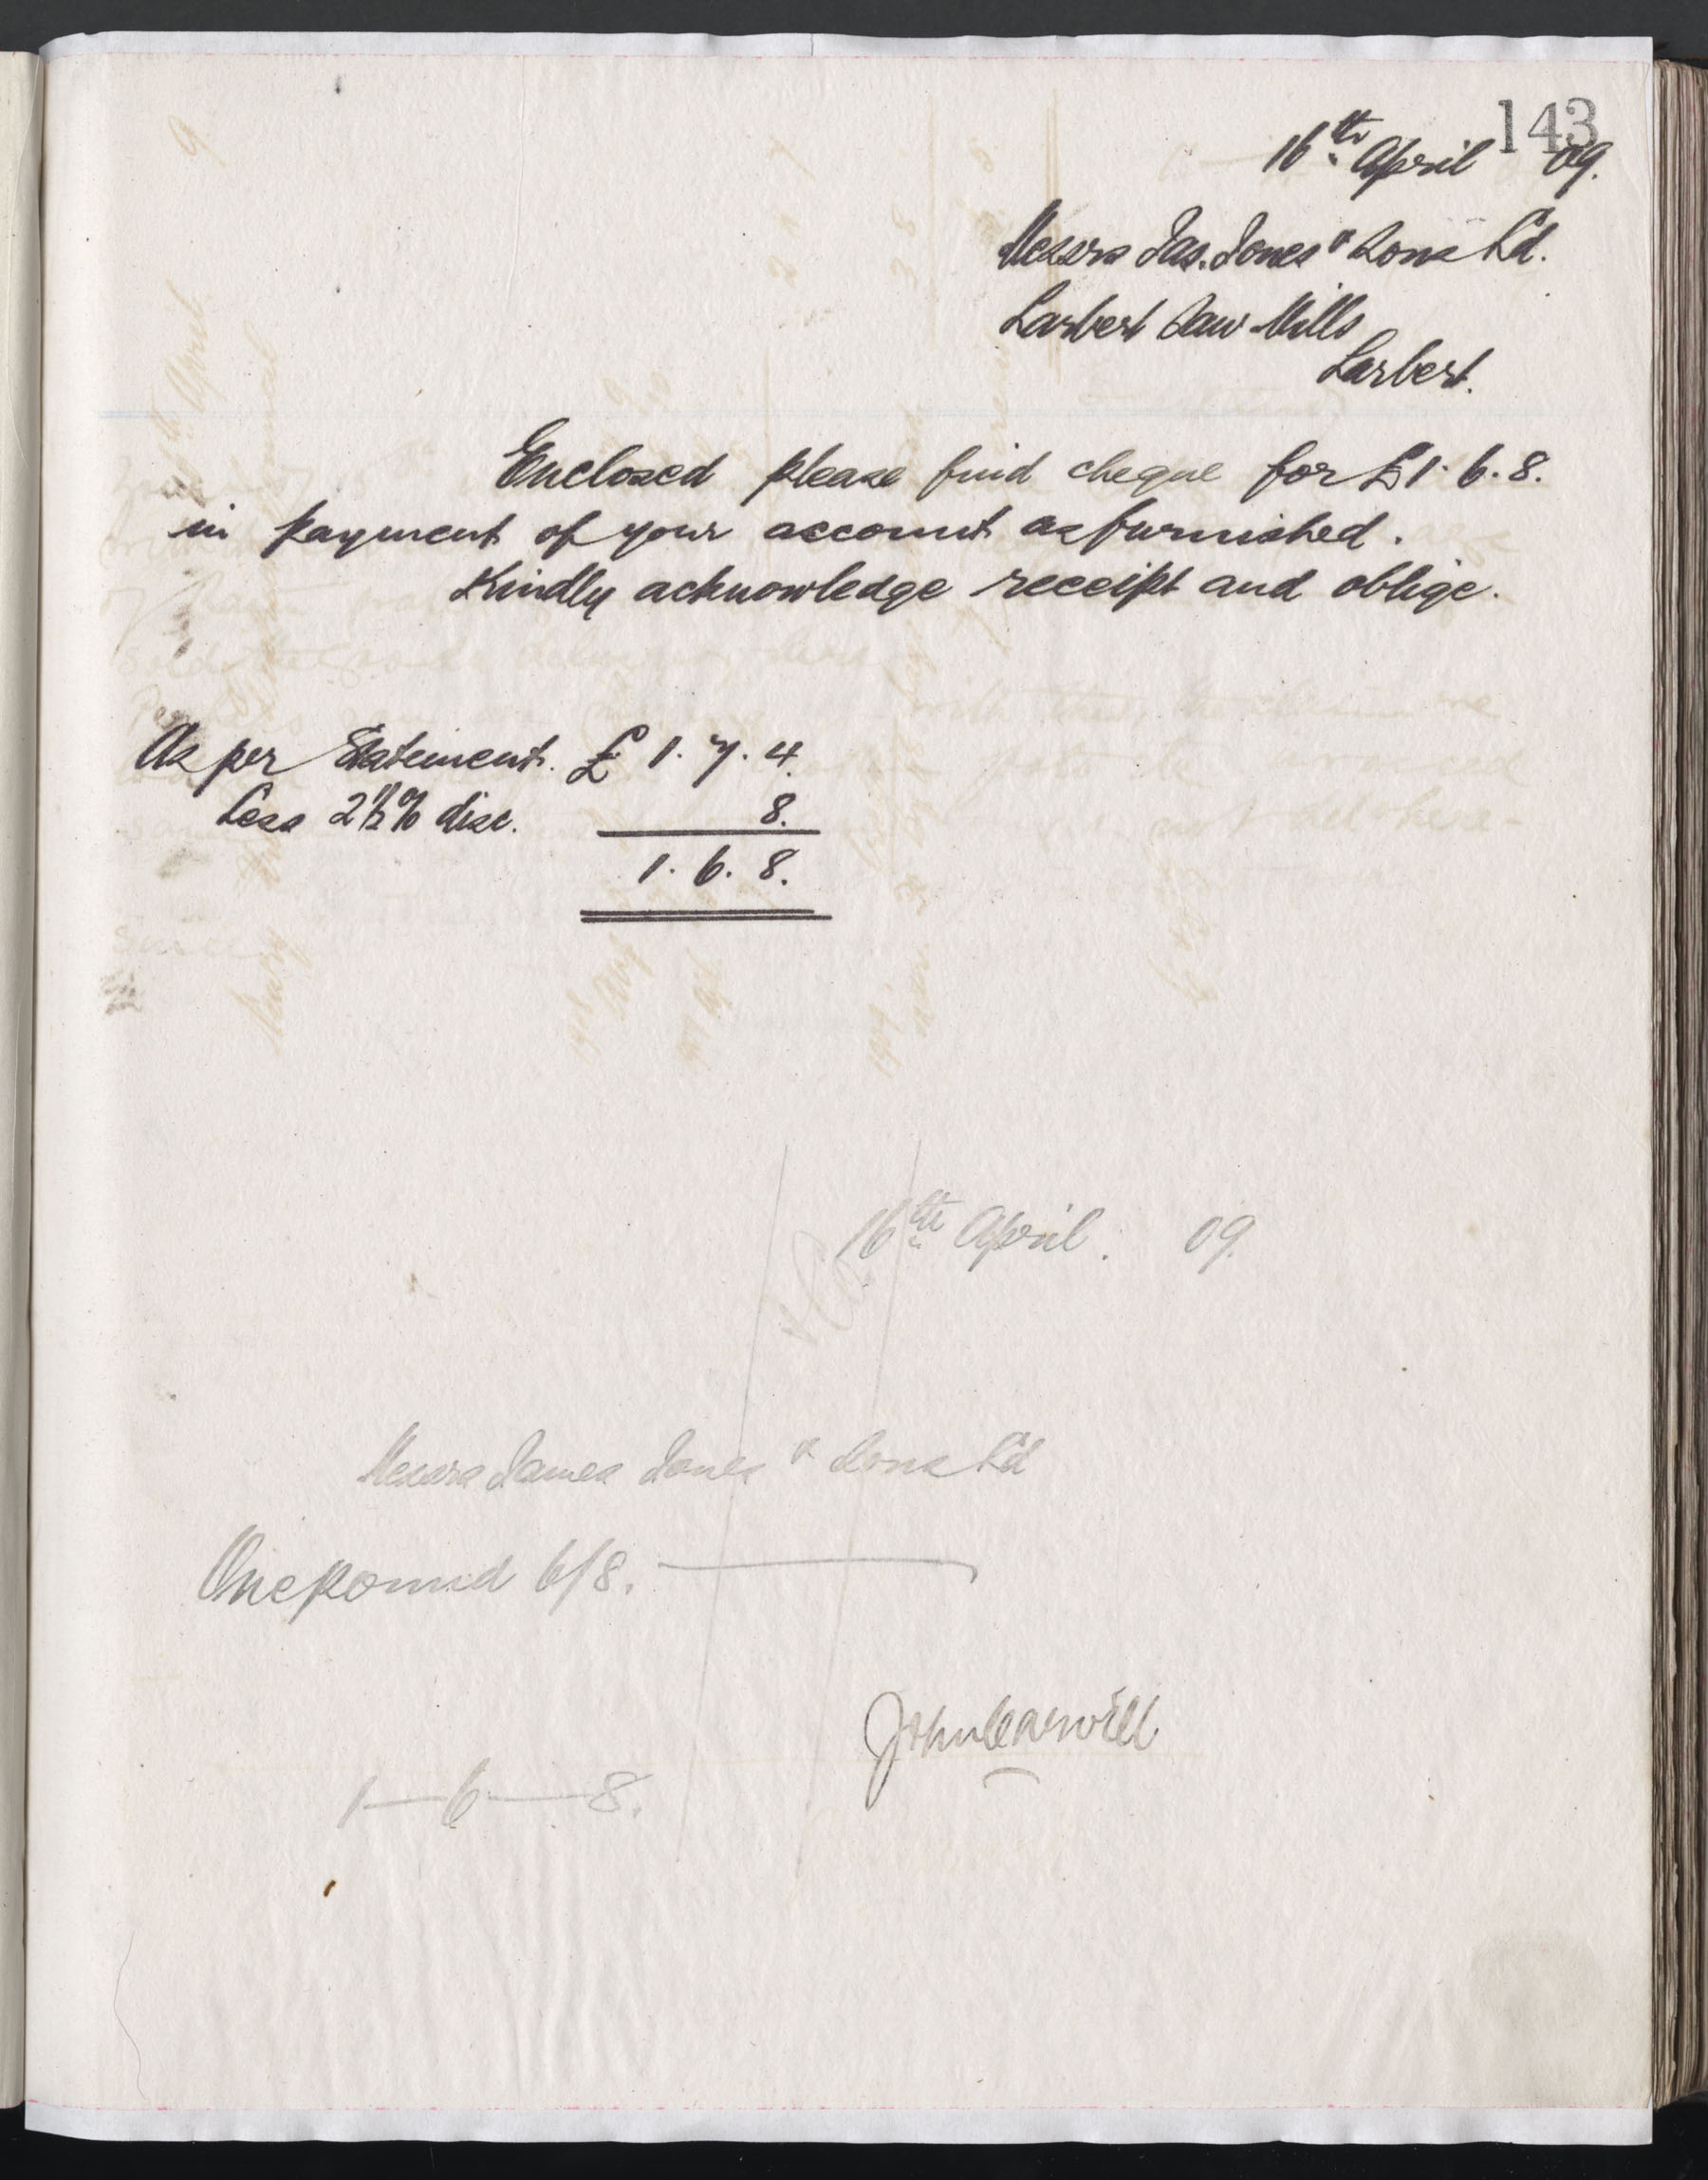 143
16th April 09.
Messrs Jas. Jones & Sons Ld.
Larbert Saw Mills
Larbert.
Enclosed please find cheque for £1. 6. 8.
in payment of your account as furnished.
Kindly acknowledge receipt and oblige.
As per Statement. £ 1. 7. 4.
Less 2½% disc. 8.
1. 6. 8.
16th April. 09.
& Co
Messrs James Jones & Sons Ld
One pound 6/8.
John Carswill
1—6—8.